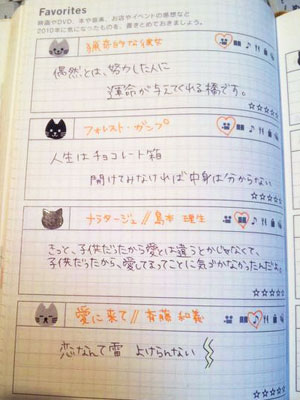 Favorites
映画やDVD、本や音楽、お店やイベントの感想など
2010年に気になったものを、書きとめておきましょう。
猟奇的な彼女
偶然とは、努力した人に
運命が与えてくれる橋です。
☆☆☆☆☆
フォレスト・ガンプ
人生はチョコレート箱
開けてみなければ中身は分からない
☆☆☆☆☆
ナラタージュ//島本 理生
きっと、子供だったから愛とは違うとかじゃなくて、
子供だったから、愛してるってことに気づかなかったんだよ。
☆☆☆☆☆
愛に来て//斉藤 和義
恋なんて雷 よけられない
☆☆☆☆☆